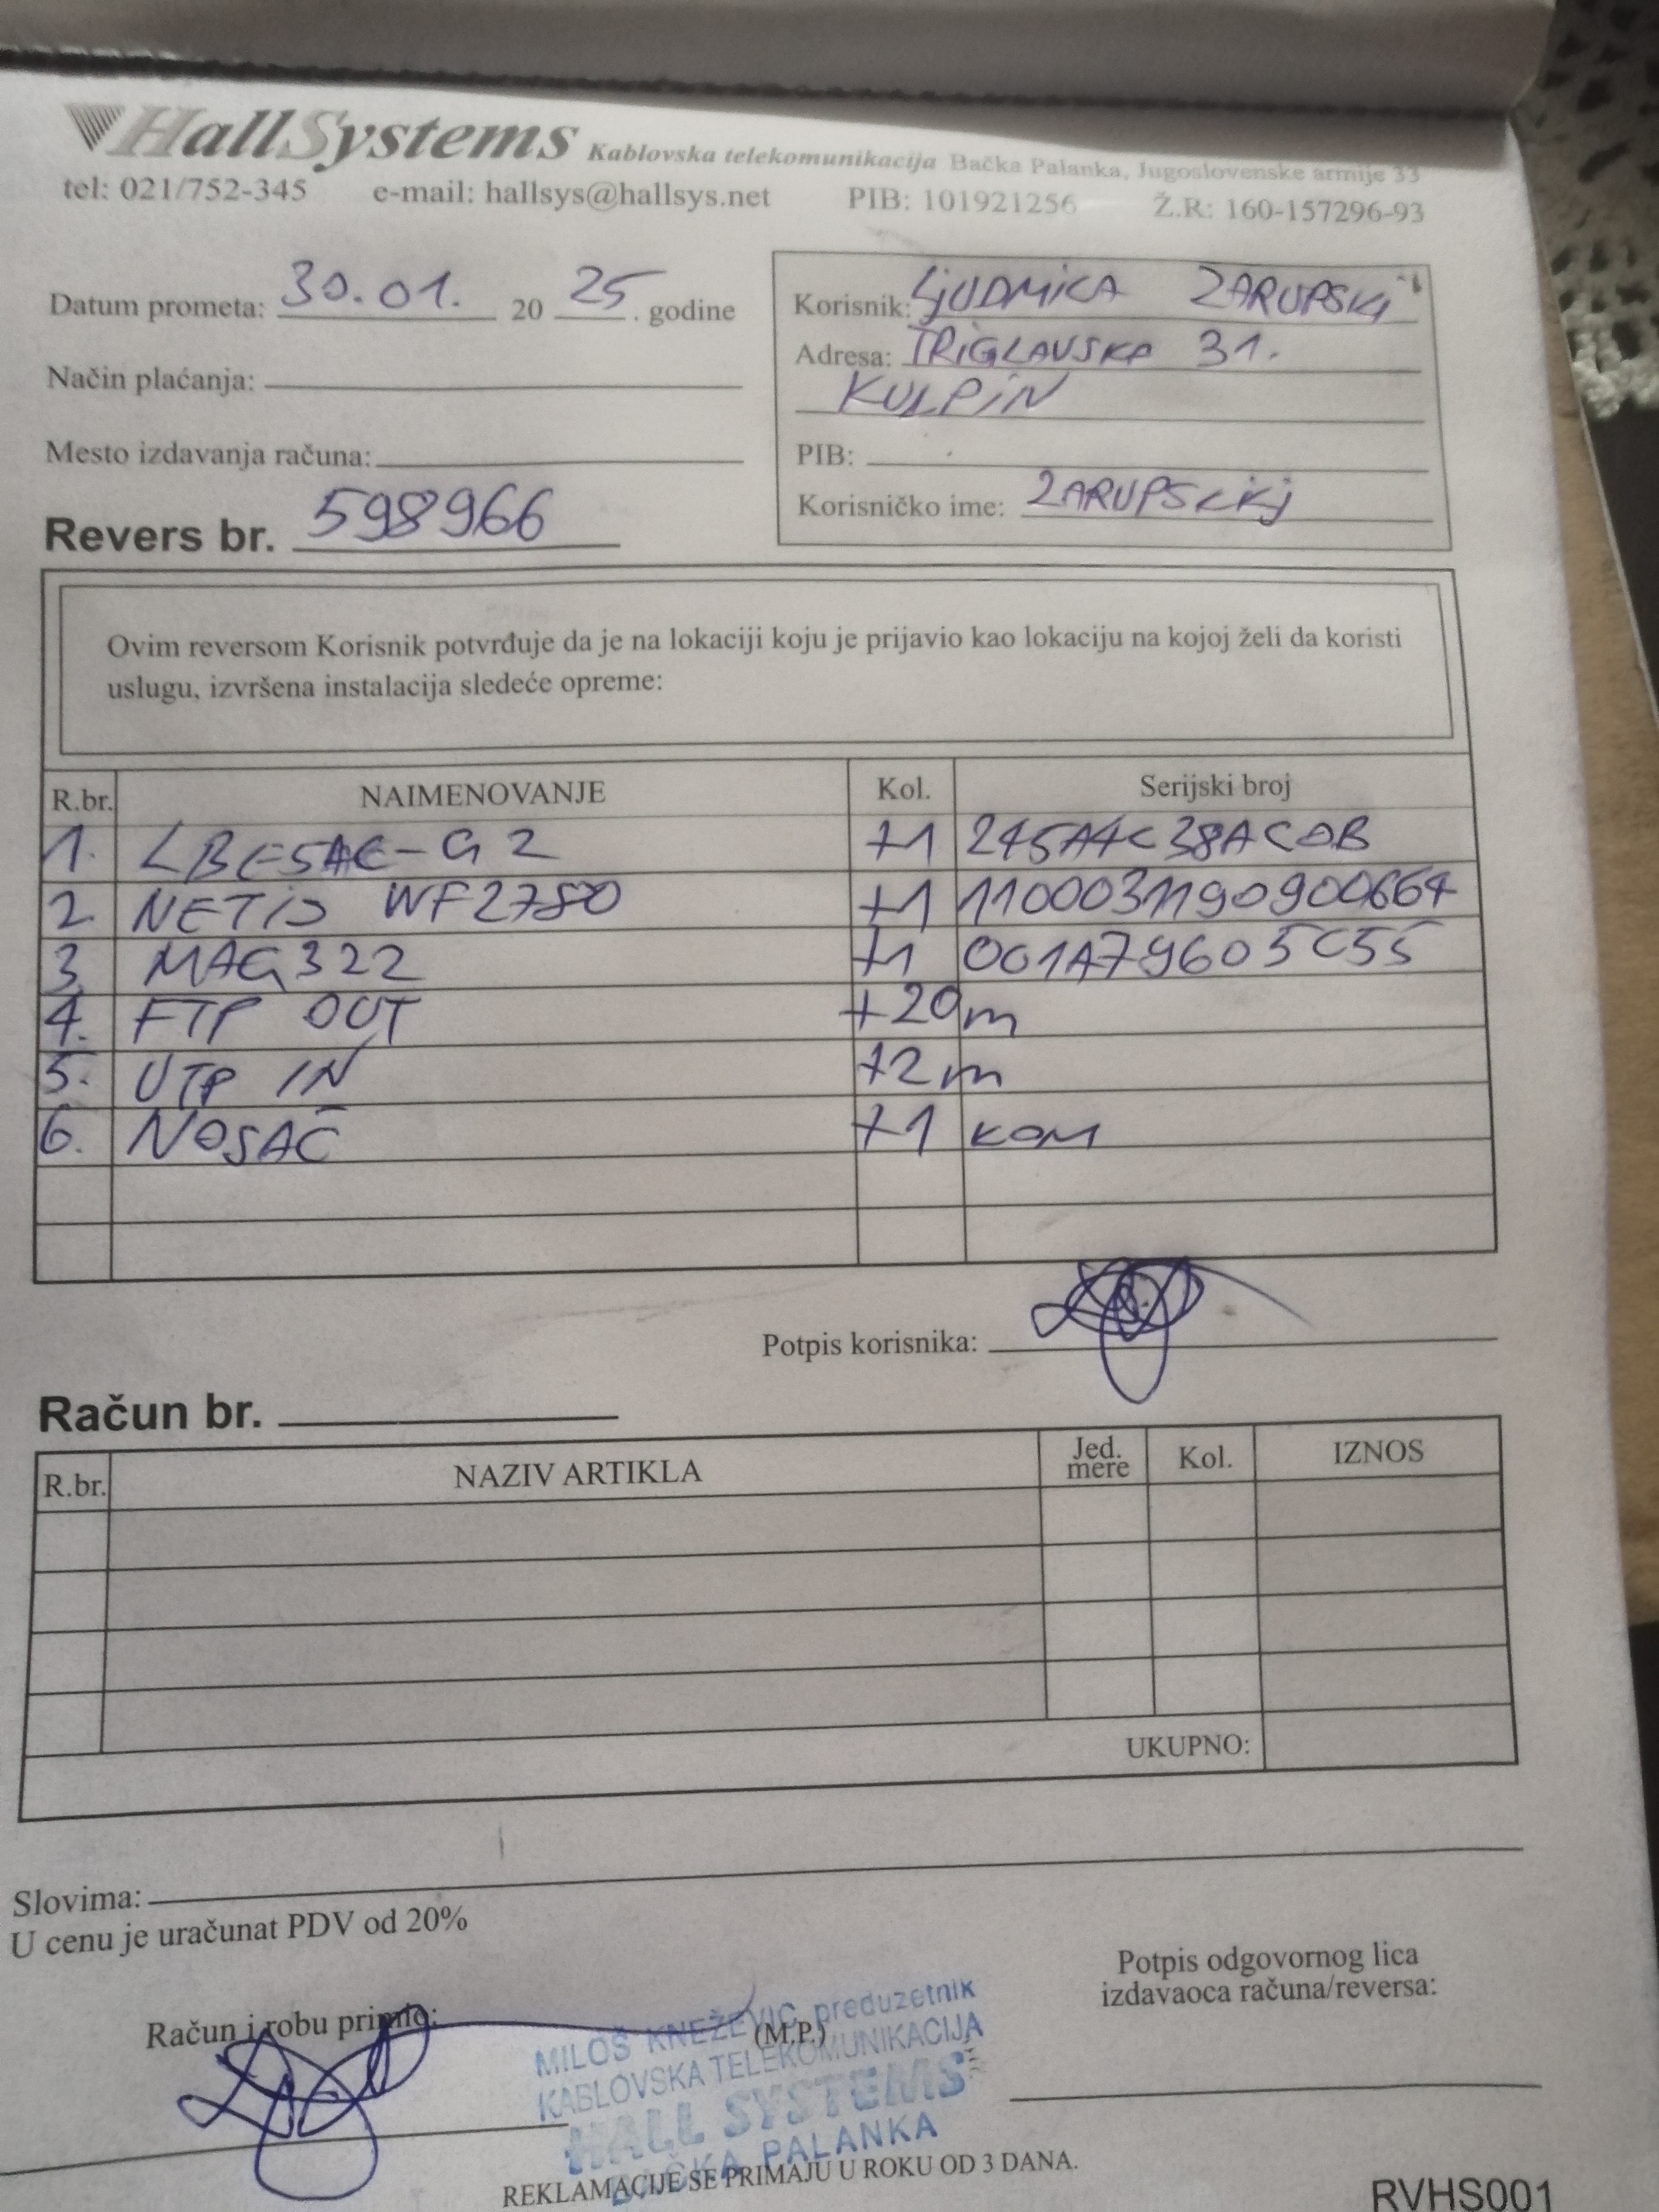 HallSystems Kablovska telekomunikacija Bačka Palanka, Jugoslovenske armije 33
tel: 021/752-345 e-mail: hallsys@hallsys.net PIB: 101921256 Ž.R: 160-157296-93
Datum prometa: 30.01. 20 25 . godine
Način plaćanja:
Mesto izdavanja računa:
Revers br. 598966
Korisnik: LJUDMICA ZARUPSKI
Adresa: TRIGLAVSKA 31.
KULPIN
PIB:
Korisničko ime: ZARUPSKIKJ
Ovim reversom Korisnik potvrđuje da je na lokaciji koju je prijavio kao lokaciju na kojoj želi da koristi
uslugu, izvršena instalacija sledeće opreme:
R.br. NAIMENOVANJE Kol. Serijski broj
1. LBE5AC-G2 +1 245A4C38ACDB
2. NETIS WF2780 +1 1100031190900664
3. MAG322 +1 001A79605C55
4. FTP OUT +20m
5. UTP IN +2m
6. NOSAČ +1 KOM
Potpis korisnika:
Račun br.
R.br. NAZIV ARTIKLA Jed. mere Kol. IZNOS
UKUPNO:
Slovima:
U cenu je uračunat PDV od 20%
Račun i robu primio:
(M.P.)
Potpis odgovornog lica
izdavaoca računa/reversa:
MILOŠ KNEŽEVIĆ preduzetnik
KABLOVSKA TELEKOMUNIKACIJA
HALL SYSTEMS
BAČKA PALANKA
REKLAMACIJE SE PRIMAJU U ROKU OD 3 DANA.
RVHS001